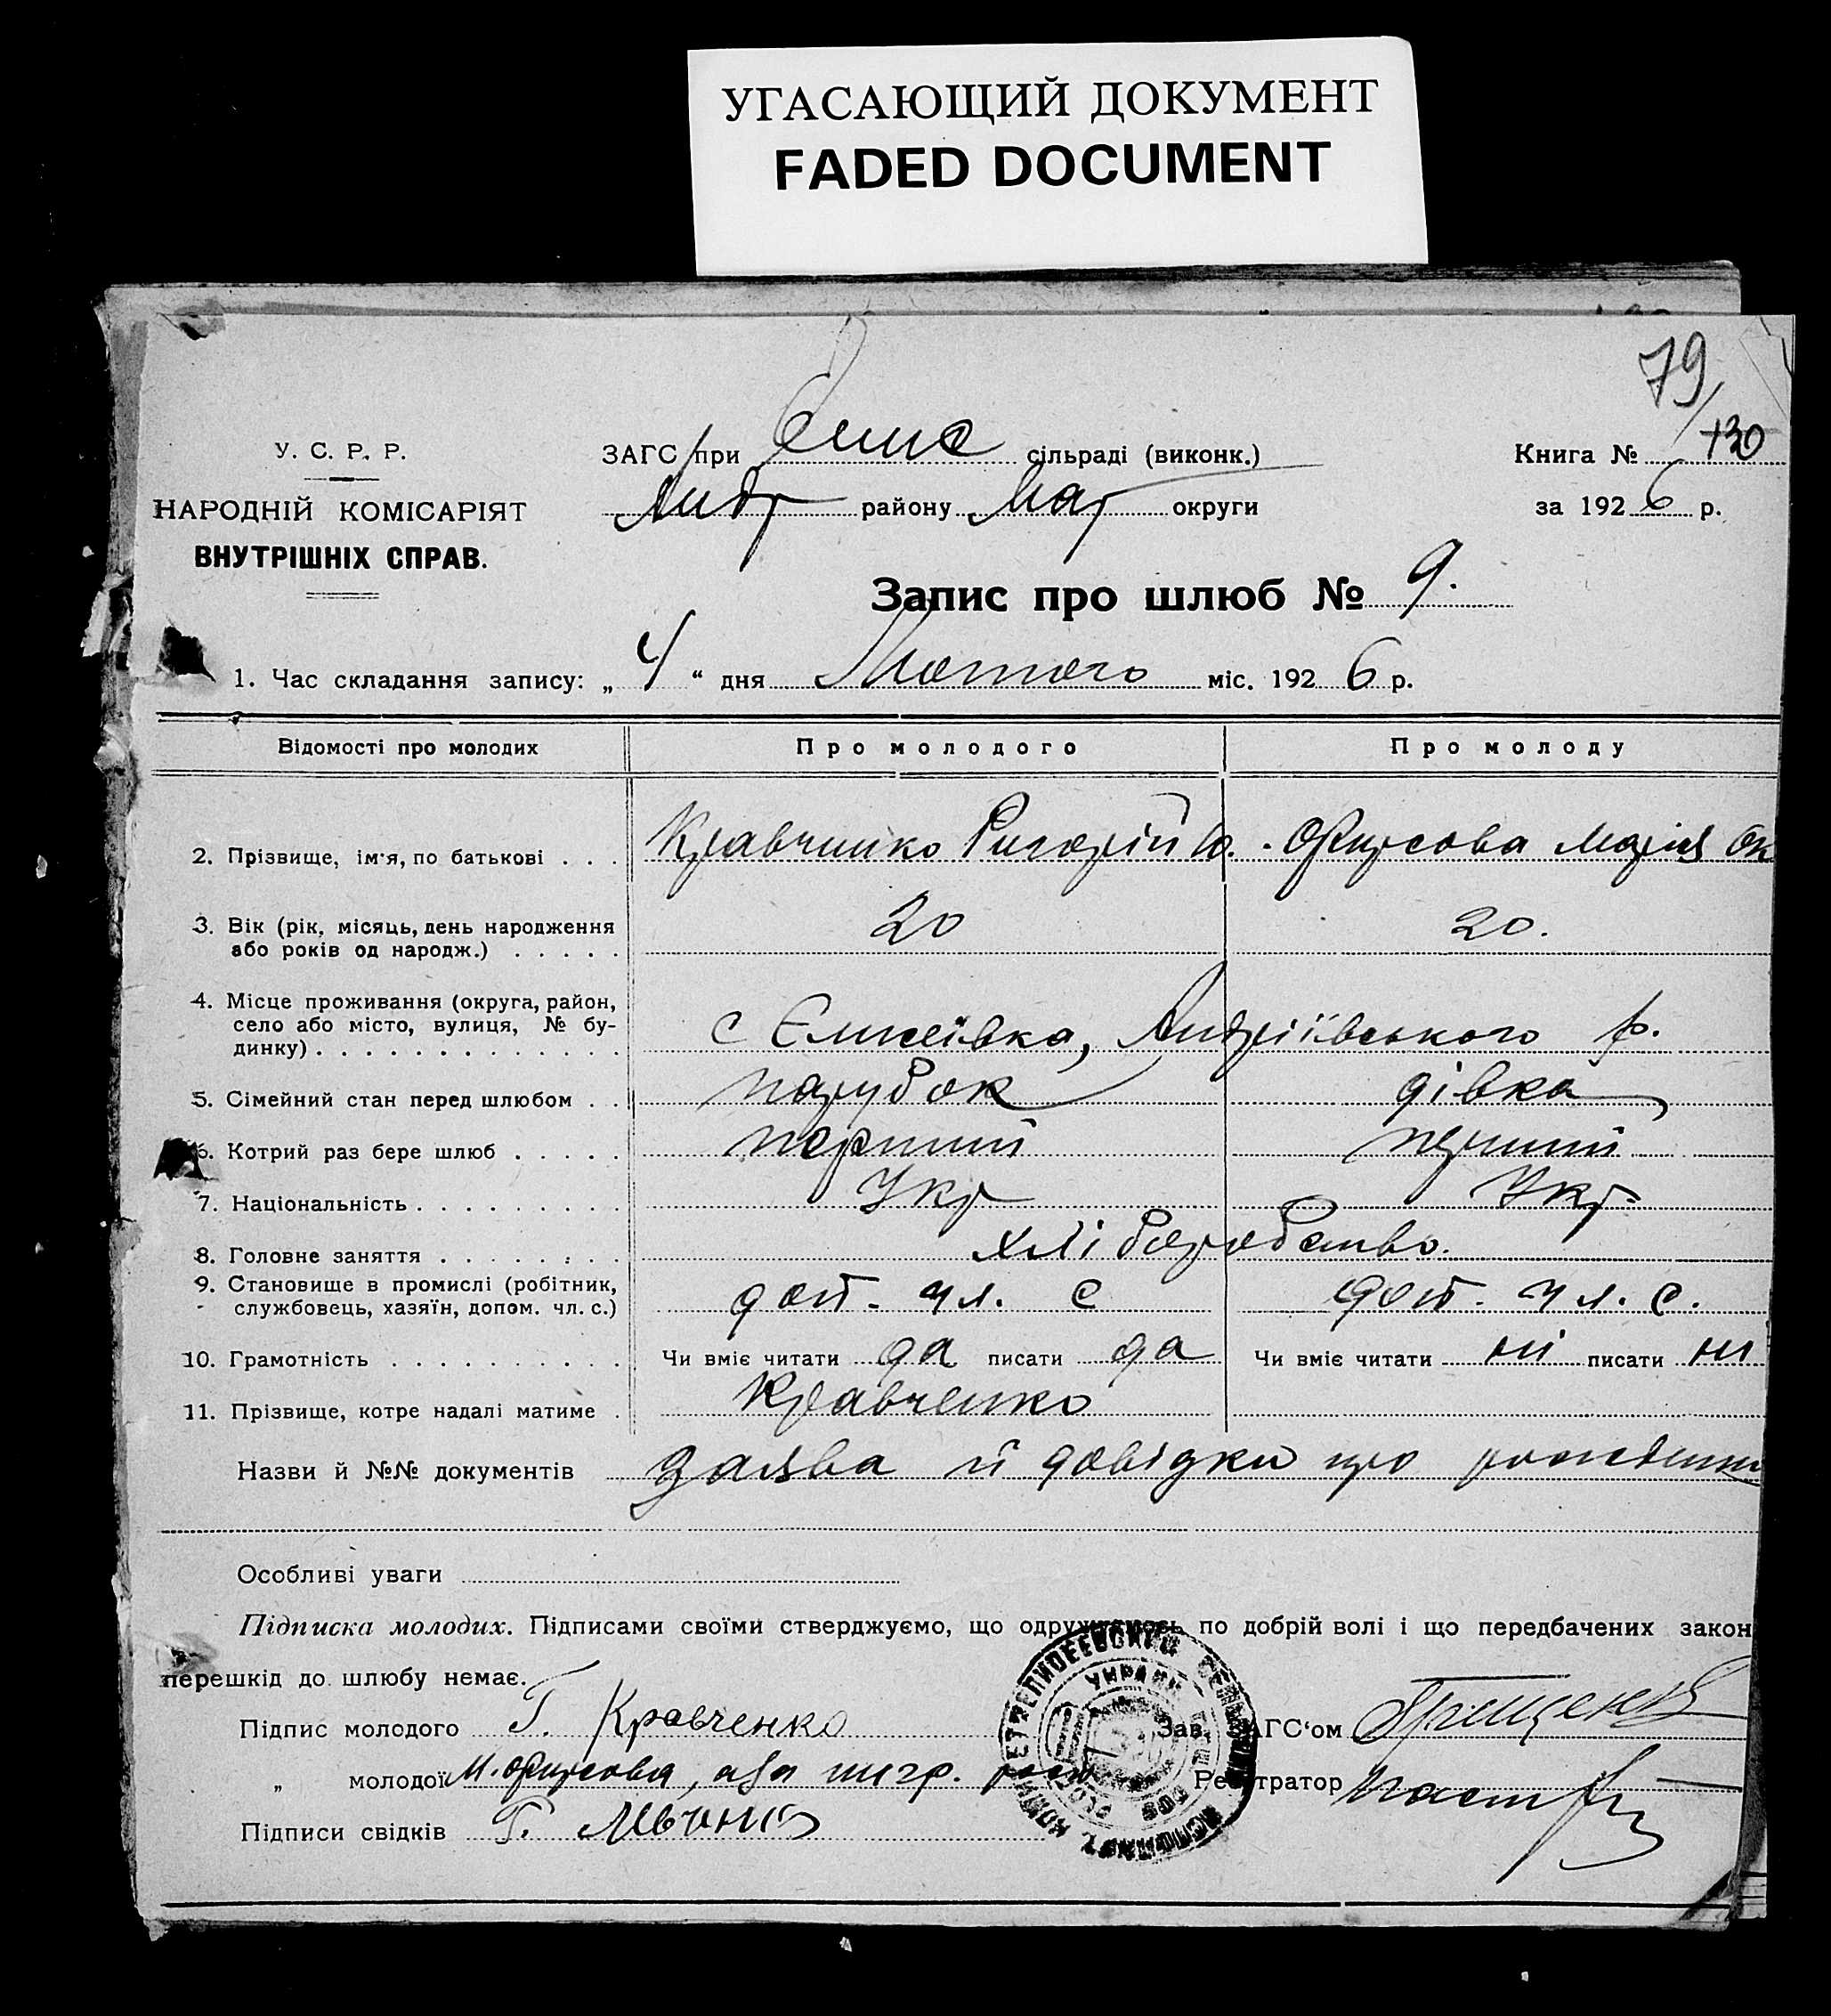 УГАСАЮЩИЙ ДОКУМЕНТ
FADED DOCUMENT
79
130
У. С. Р. Р.
НАРОДНІЙ КОМІСАРІЯТ
ВНУТРІШНІХ СПРАВ.
ЗАГС при сільраді (виконк.)
Андр району Мар округи
Книга №
за 1926 р.
Запис про шлюб № 9.
1. Час складання запису: „ 4 “ дня Лютого міс. 1926 р.
Відомості про молодих Про молодого Про молоду
2. Прізвище, ім'я, по батькові . . . Кравченко Григорій Ю. Фирсова Марія Ок
3. Вік (рік, місяць, день народження
або років од народж.) . . . . . 20 20.
4. Місце проживання (округа, район,
село або місто, вулиця, № бу-
динку) . . . . . . . . . . . . . с Єлисеївка, Андріївського р.
5. Сімейний стан перед шлюбом . . парубок дівка
6. Котрий раз бере шлюб . . . . . перший перший
7. Національність . . . . . . . . . Укр Укр.
8. Головне заняття . . . . . . . . хліборобство.
9. Становище в промислі (робітник,
службовець, хазяїн, допом. чл. с.) доп. чл. с доп. чл. с.
10. Грамотність . . . . . . . . . . Чи вміє читати да писати да Чи вміє читати ні писати ні
11. Прізвище, котре надалі матиме . Кравченко
Назви й №№ документів заява й довідки про
Особливі уваги
Підписка молодих. Підписами своїми стверджуємо, що одружуємось по добрій волі і що передбачених закон
перешкід до шлюбу немає.
Підпис молодого Г. Кравченко
Зав. ЗАГС'ом
„ молодої М. Фирсова, а за негр.
Реєстратор
Підписи свідків Г.